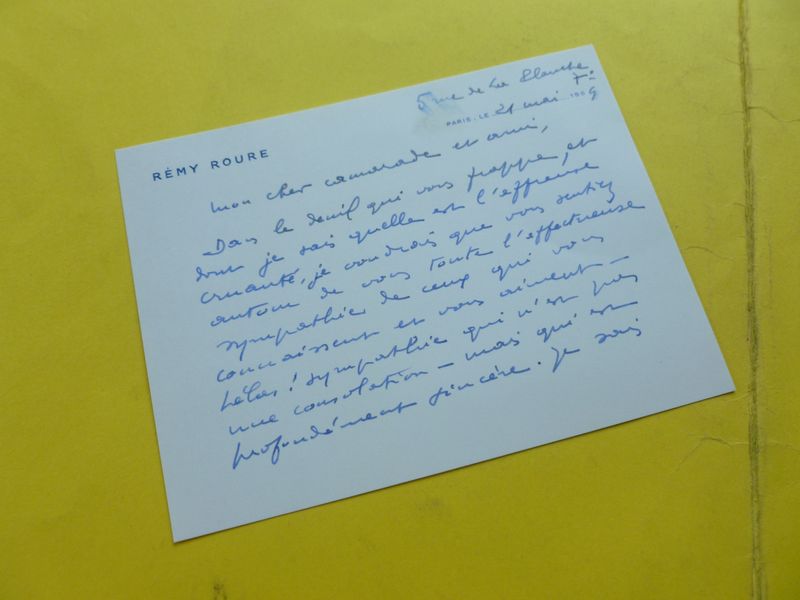 5 rue de la Planche
7e
PARIS, LE 21 mai 195 9
RÉMY ROURE
mon cher camarade et ami,
Dans le deuil qui vous frappe, et
dont je sais quelle est l'affreuse
cruauté, je voudrais que vous sentiez
autour de vous toute l'affectueuse
sympathie de ceux qui vous
connaissent et vous aiment —
hélas ! sympathie qui n'est pas
une consolation — mais qui est
profondément sincère. Je sais